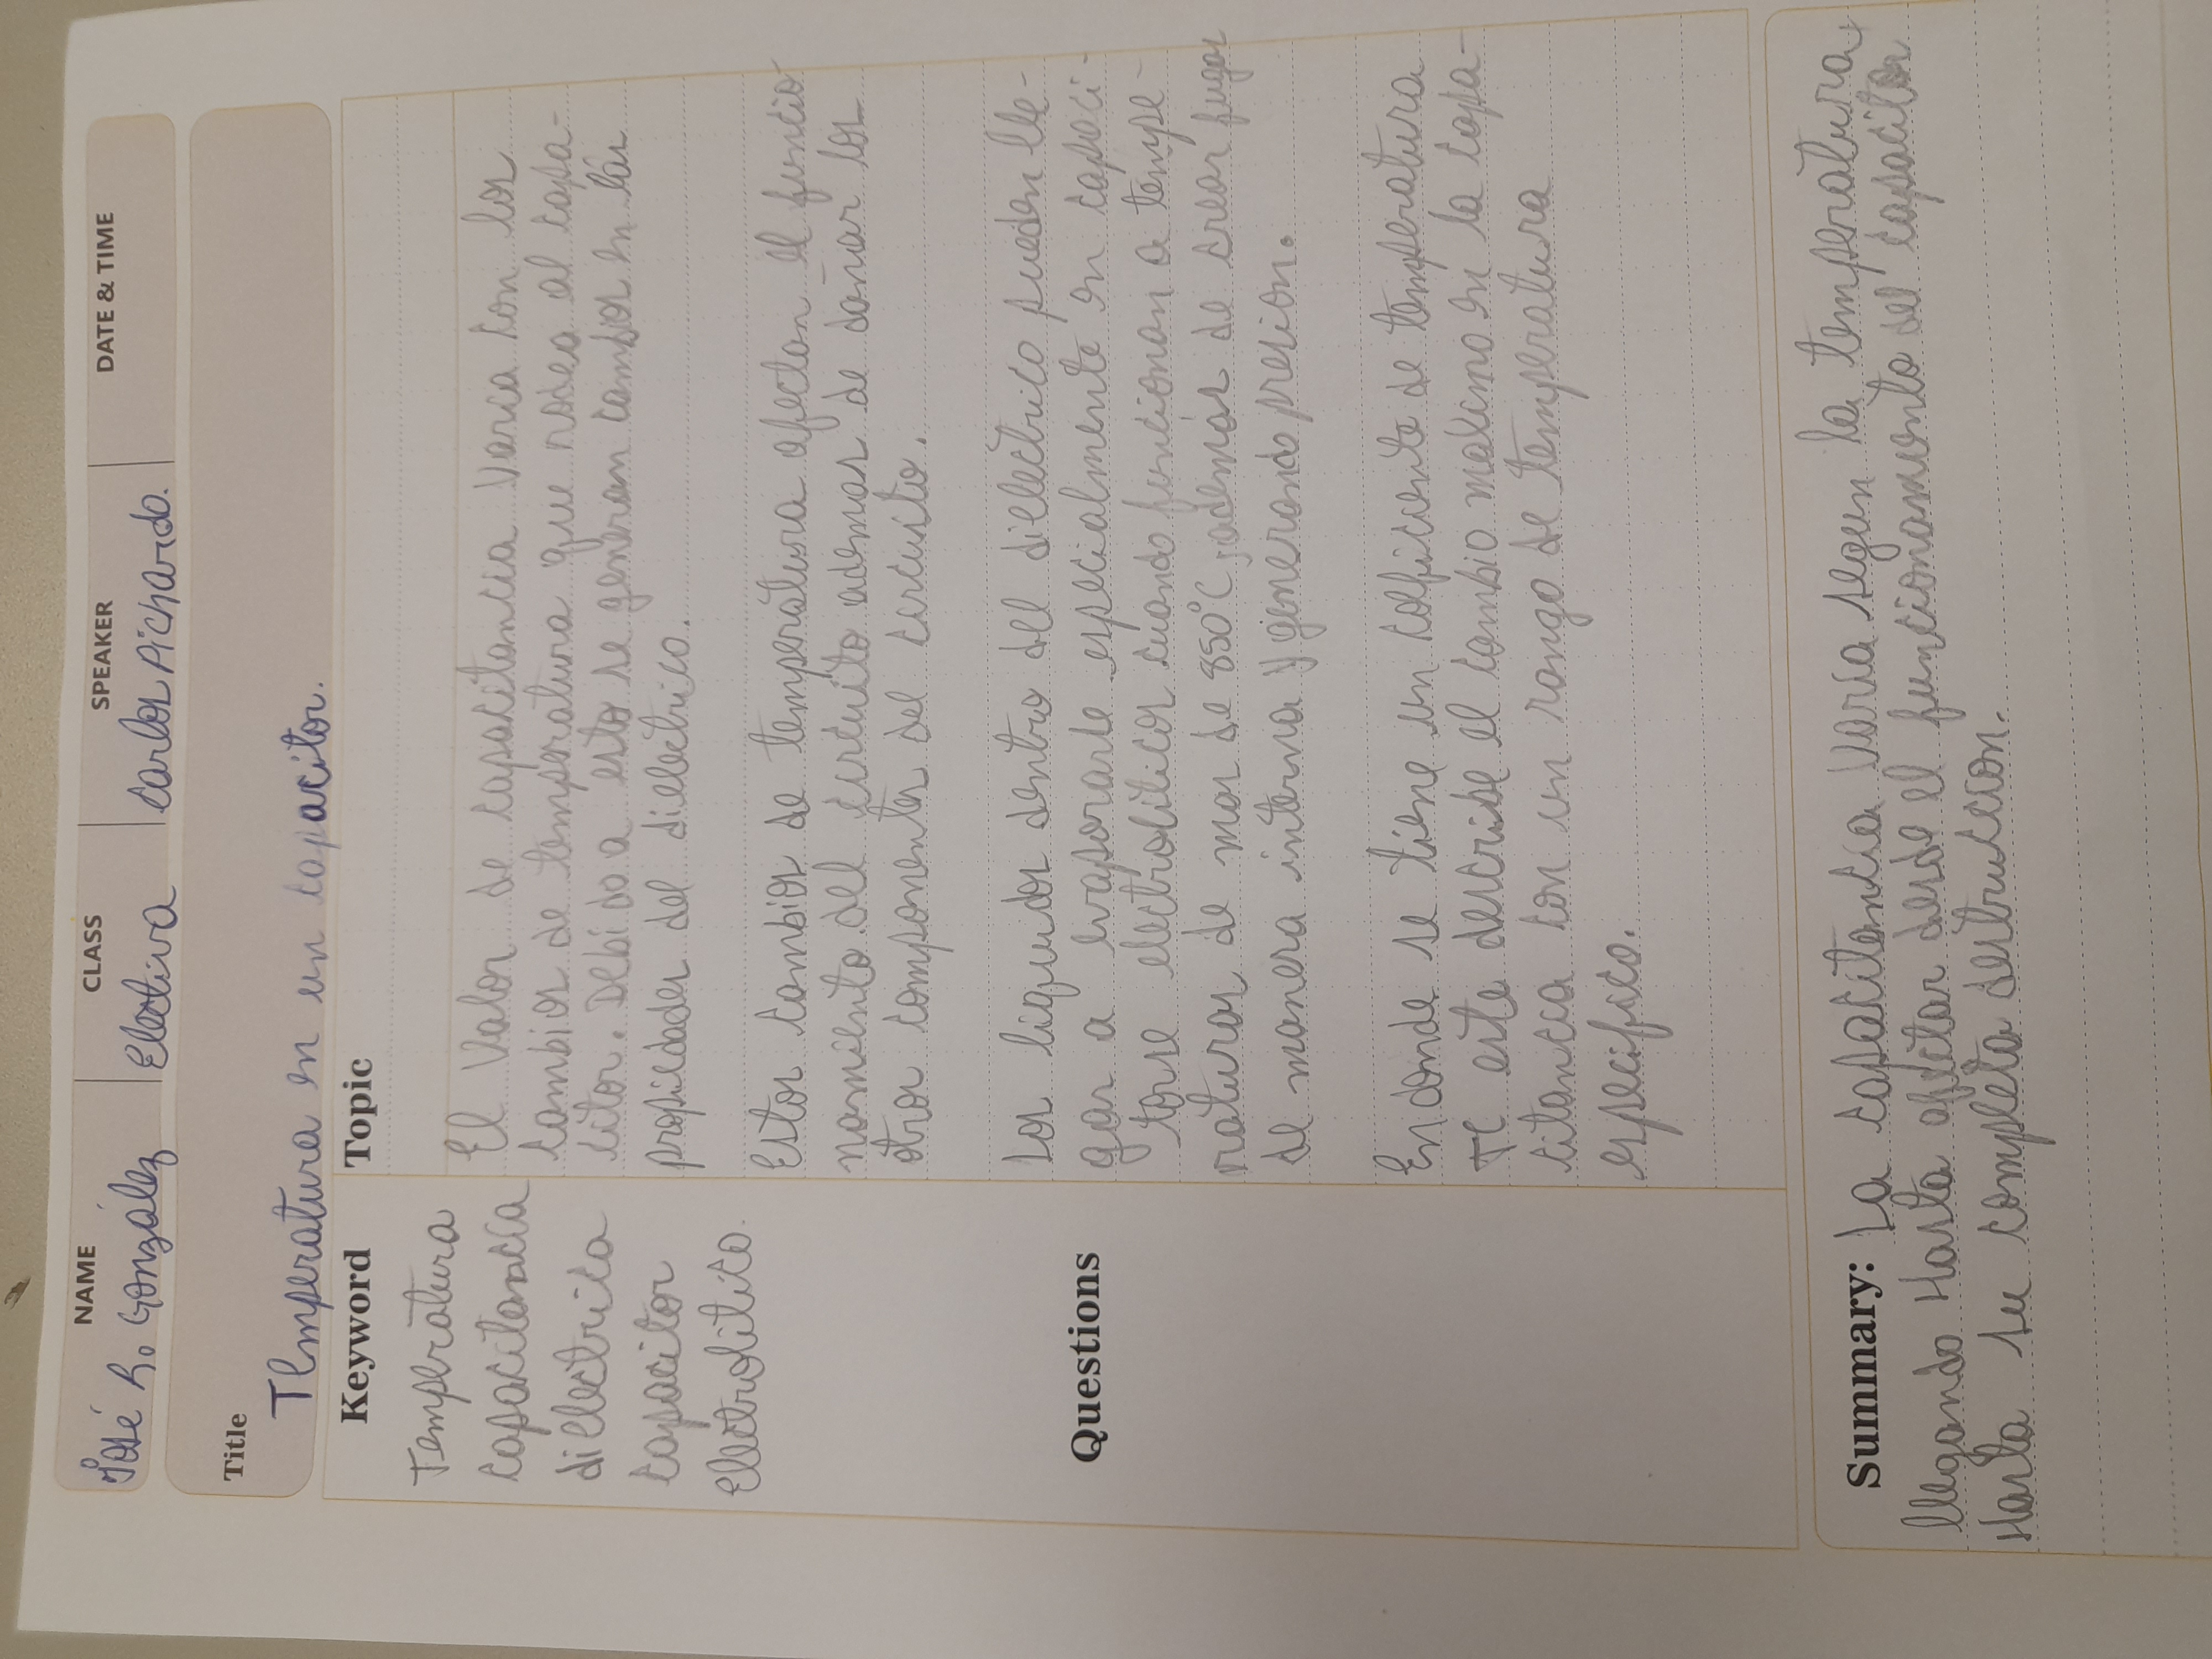 NAME CLASS SPEAKER DATE & TIME
José R. González Electiva Carlos Pichardo.
Title
Temperatura en un capacitor.
Keyword
Temperatura
capacitancia
dielectrica
capacitor
Electrolitico.
Questions
Topic
El Valor de capacitancia Varia con los
cambios de temperatura que rodea al capa-
citor. Debido a esto se generan cambios en las
propiedades del dielectrico.
Estos cambios de temperatura afectan el funcio-
namiento del circuito ademas de dañar los
otros componentes del circuito.
Los liquidos dentro del dielectrico pueden lle-
gar a evaporarse especialmente en capaci-
torse electroliticos cuando funcionan a tempe-
raturas de mas de 850°C, además de crear fugas
de manera interna y generando presion.
En donde se tiene un coeficiente de temperatura
TC este describe el cambio maximo en la capa-
citancia con un rango de temperatura
especifico.
Summary: La capacitancia Varia segun la temperatura,
llegando Hasta afectar desde el funcionamiento del capacitor
Hasta su completa destruccion.